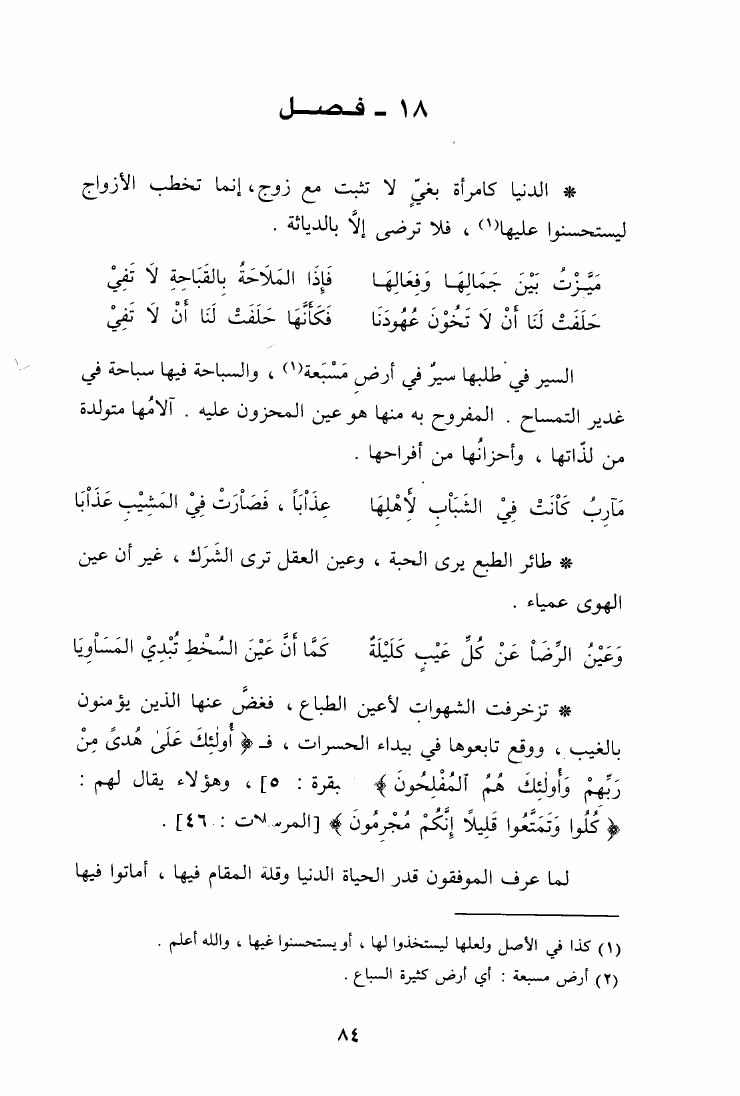 ١٨ - فـصـــل
* الدنيا كامرأة بغيّ لا تثبت مع زوج، إنما تخطب الأزواج
ليستحسنوا عليها(١) ، فلا ترضى إلاَّ بالدياثة .
مَيَّزْتُ بَيْنَ جَمَالِهَا وَفِعَالِهَا فَإِذَا المَلَاحَةُ بِالقَبَاحَةِ لَا تَفِيْ
حَلَفَتْ لَنَا أَنْ لَا تَخُوْنَ عُهُودَنَا فَكَأَنَّهَا حَلَفَتْ لَنَا أَنْ لَا تَفِيْ
السير في طلبها سيرٌ في أرضِ مَسْبَعة(١) ، والسباحة فيها سباحة في
غدير التمساح . المفروح به منها هو عين المحزون عليه . آلامُها متولدة
من لذّاتها ، وأحزانُها من أفراحها .
مَآرِبُ كَاْنَتْ فِيْ الشَّبَاْبِ لأَهْلِهَا عِذَاْبَاً ، فَصَاْرَتْ فِيْ المَشِيْبِ عَذَاْبَا
* طائر الطبع يرى الحبة ، وعين العقل ترى الشَّرَك ، غير أن عين
الهوى عمياء .
وَعَيْنُ الرِّضَاْ عَنْ كُلِّ عَيْبٍ كَلِيْلَةٌ كَمَّا أَنَّ عَيْنَ السُّخْطِ تُبْدِيْ المَسَاْوِيَا
* تزخرفت الشهوات لأعين الطباع ، فغضَّ عنها الذين يؤمنون
بالغيب ، ووقع تابعوها في بيداء الحسرات ، فـ ﴿ أُولَٰئِكَ عَلَىٰ هُدىً مِنْ
رَبِّهِمْ وَأُولَٰئِكَ هُمُ ٱلمُفْلِحُونَ ﴾ بقرة : ٥] ، وهؤلاء يقال لهم :
﴿ كُلُوا وَتَمَتَّعُوا قَلِيلًا إِنَّكُمْ مُجْرِمُونَ ﴾ [المرسلات : ٤٦] .
لما عرف الموفقون قدر الحياة الدنيا وقلة المقام فيها ، أماتوا فيها
(١) كذا في الأصل ولعلها ليستخذوا لها ، أو يستحسنوا غيها ، والله أعلم .
(٢) أرض مسبعة : أي أرض كثيرة السباع .
٨٤